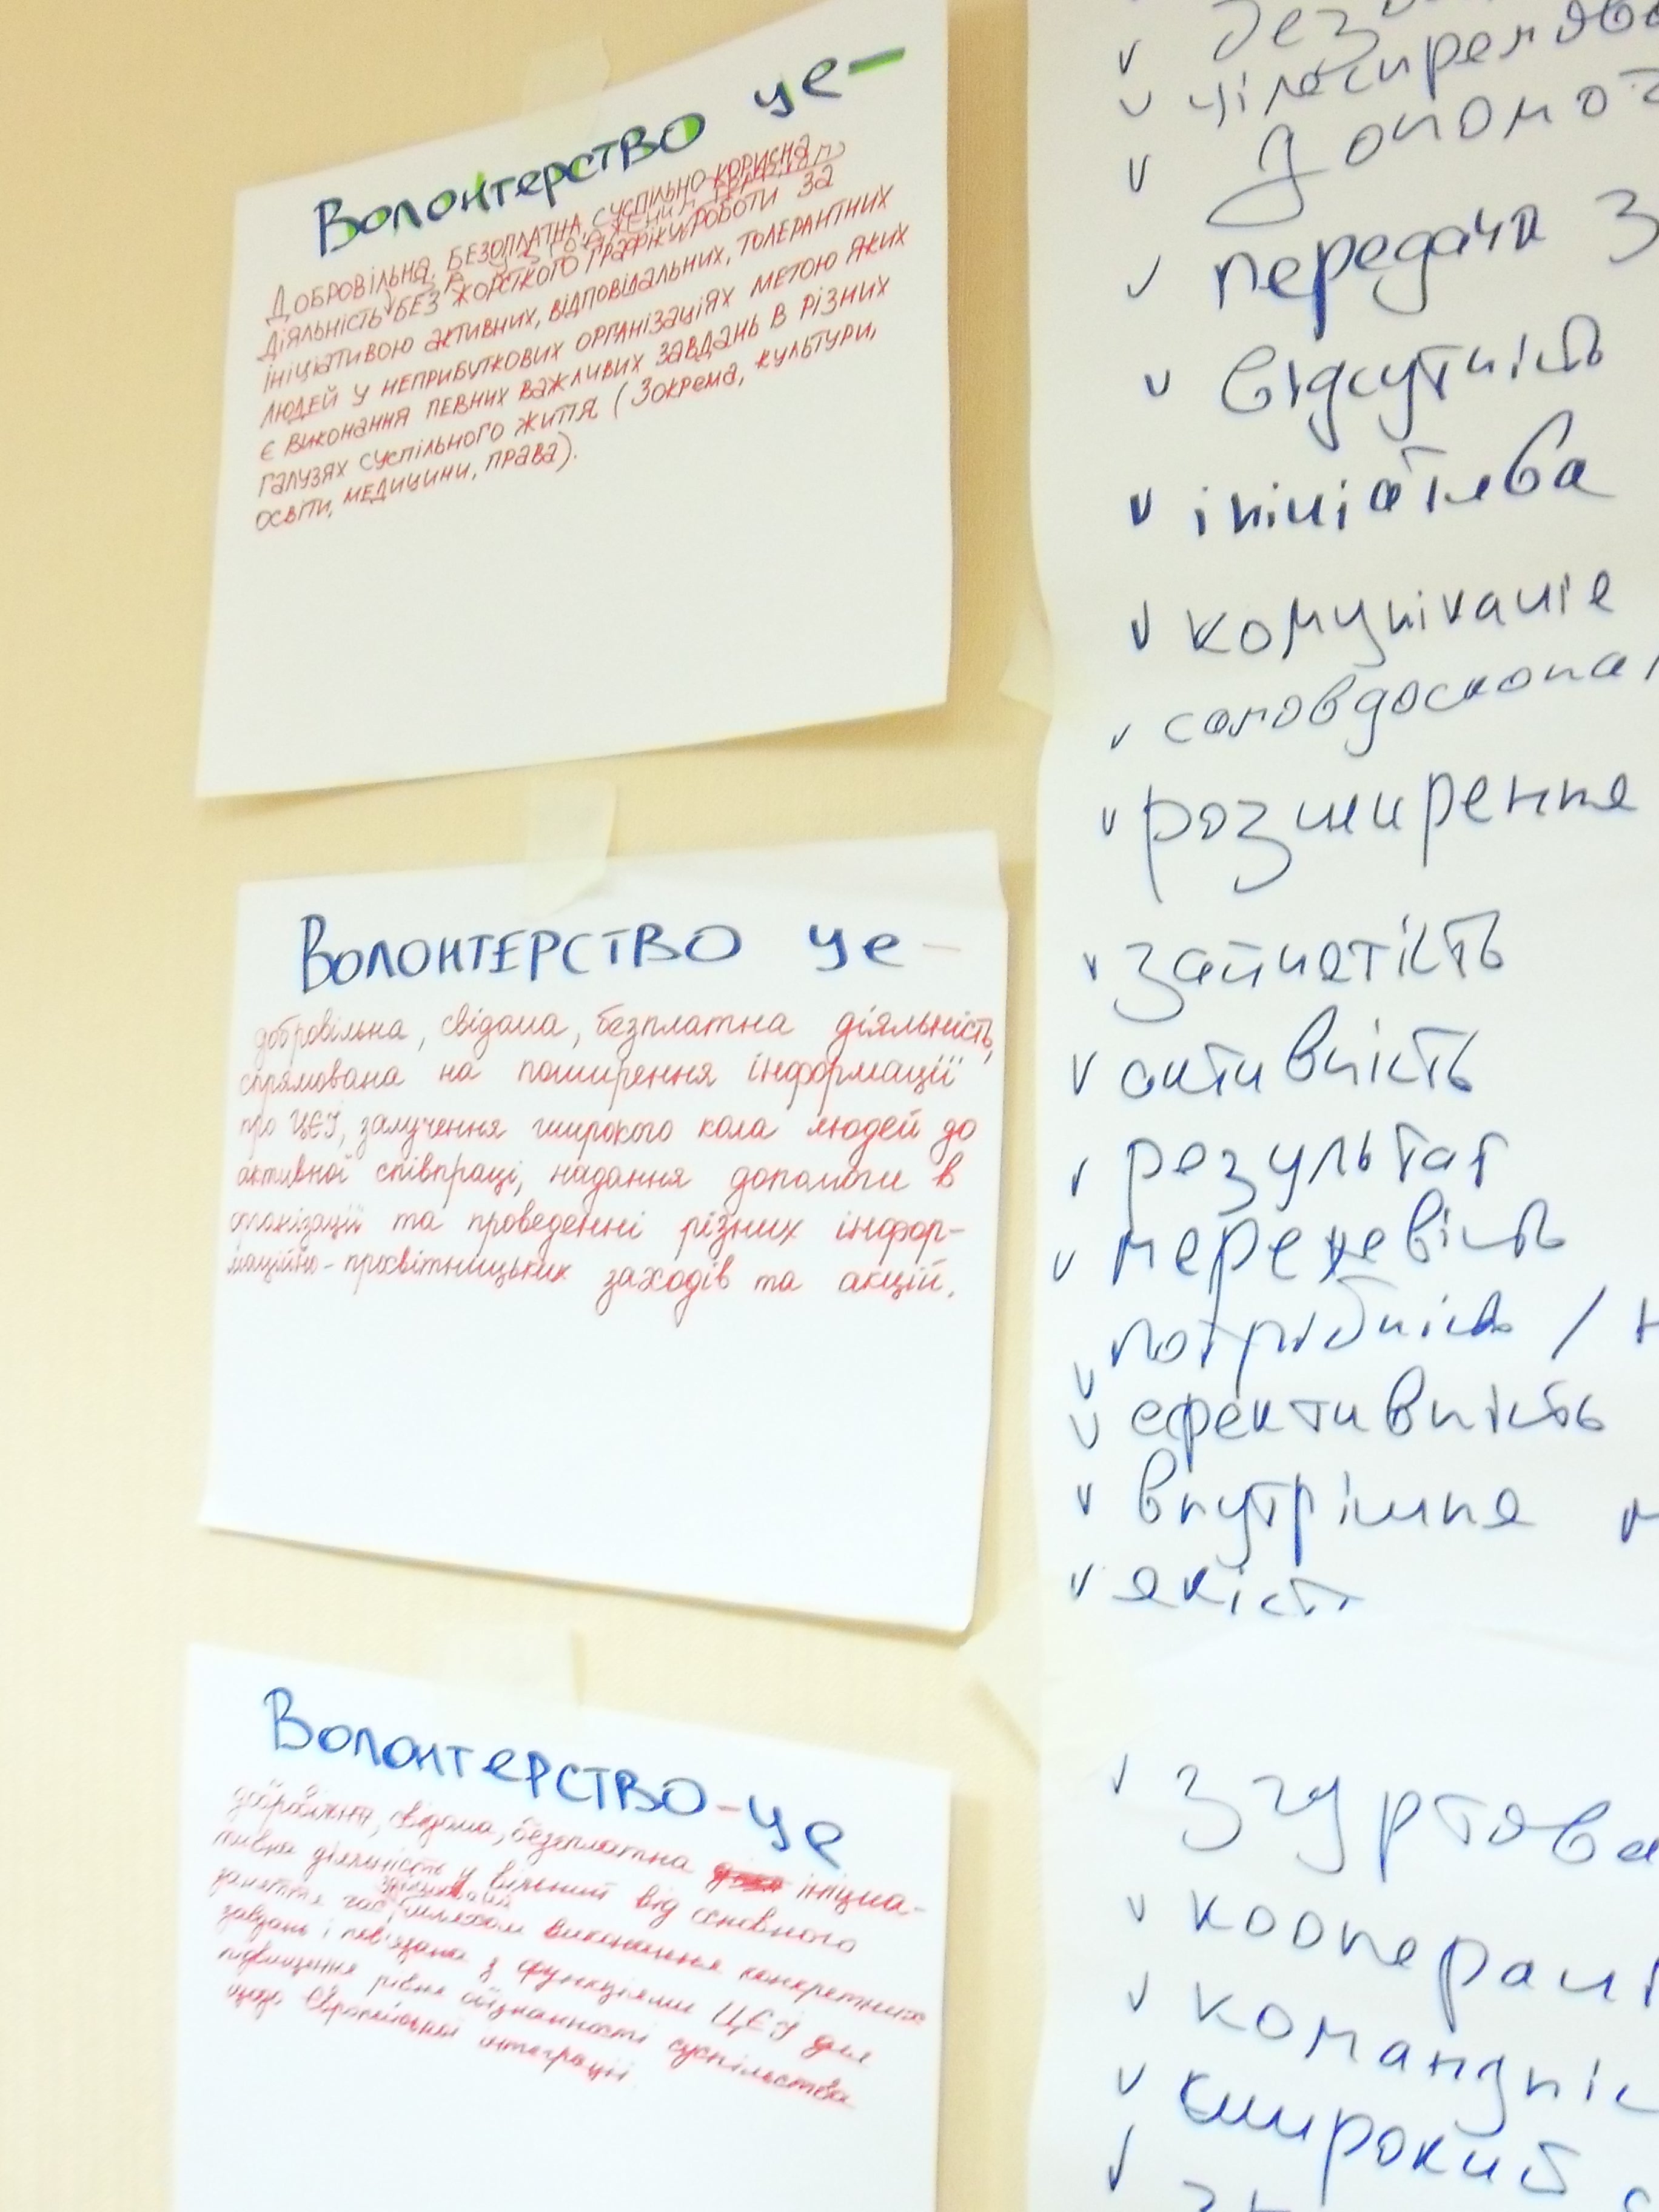 Волонтерство це —
Добровільна, безоплатна, суспільно-корисна
діяльність без жорсткого графіку роботи за
ініціативою активних, відповідальних, толерантних
людей у неприбуткових організаціях метою яких
є виконання певних важливих завдань в різних
галузях суспільного життя (Зокрема, культури,
освіти, медицини, права).
Волонтерство це —
добровільна, свідома, безплатна діяльність,
спрямована на поширення інформації
про ЦЄІ, залучення широкого кола людей до
активної співпраці, надання допомоги в
організації та проведенні різних інфор-
маційно-просвітницьких заходів та акцій.
Волонтерство - це
добровільна, свідома, безплатна ініціа-
тивна діяльність у вільний від основного
заняття час, шляхом виконання конкретних
завдань і пов'язана з функціями ЦЄІ для
підвищення рівня обізнаності суспільства
щодо Європейської інтеграції
v цілеспрямова
v допомо
v передача з
v відсутність
v ініціатива
v комунікація
v самовдоскона
v розширення
v зайнятість
v активність
v результат
v мережевість
v потрібність /
v ефективність
v внутрішня м
v якість
v згуртова
v коопераці
v командніс
v широкий